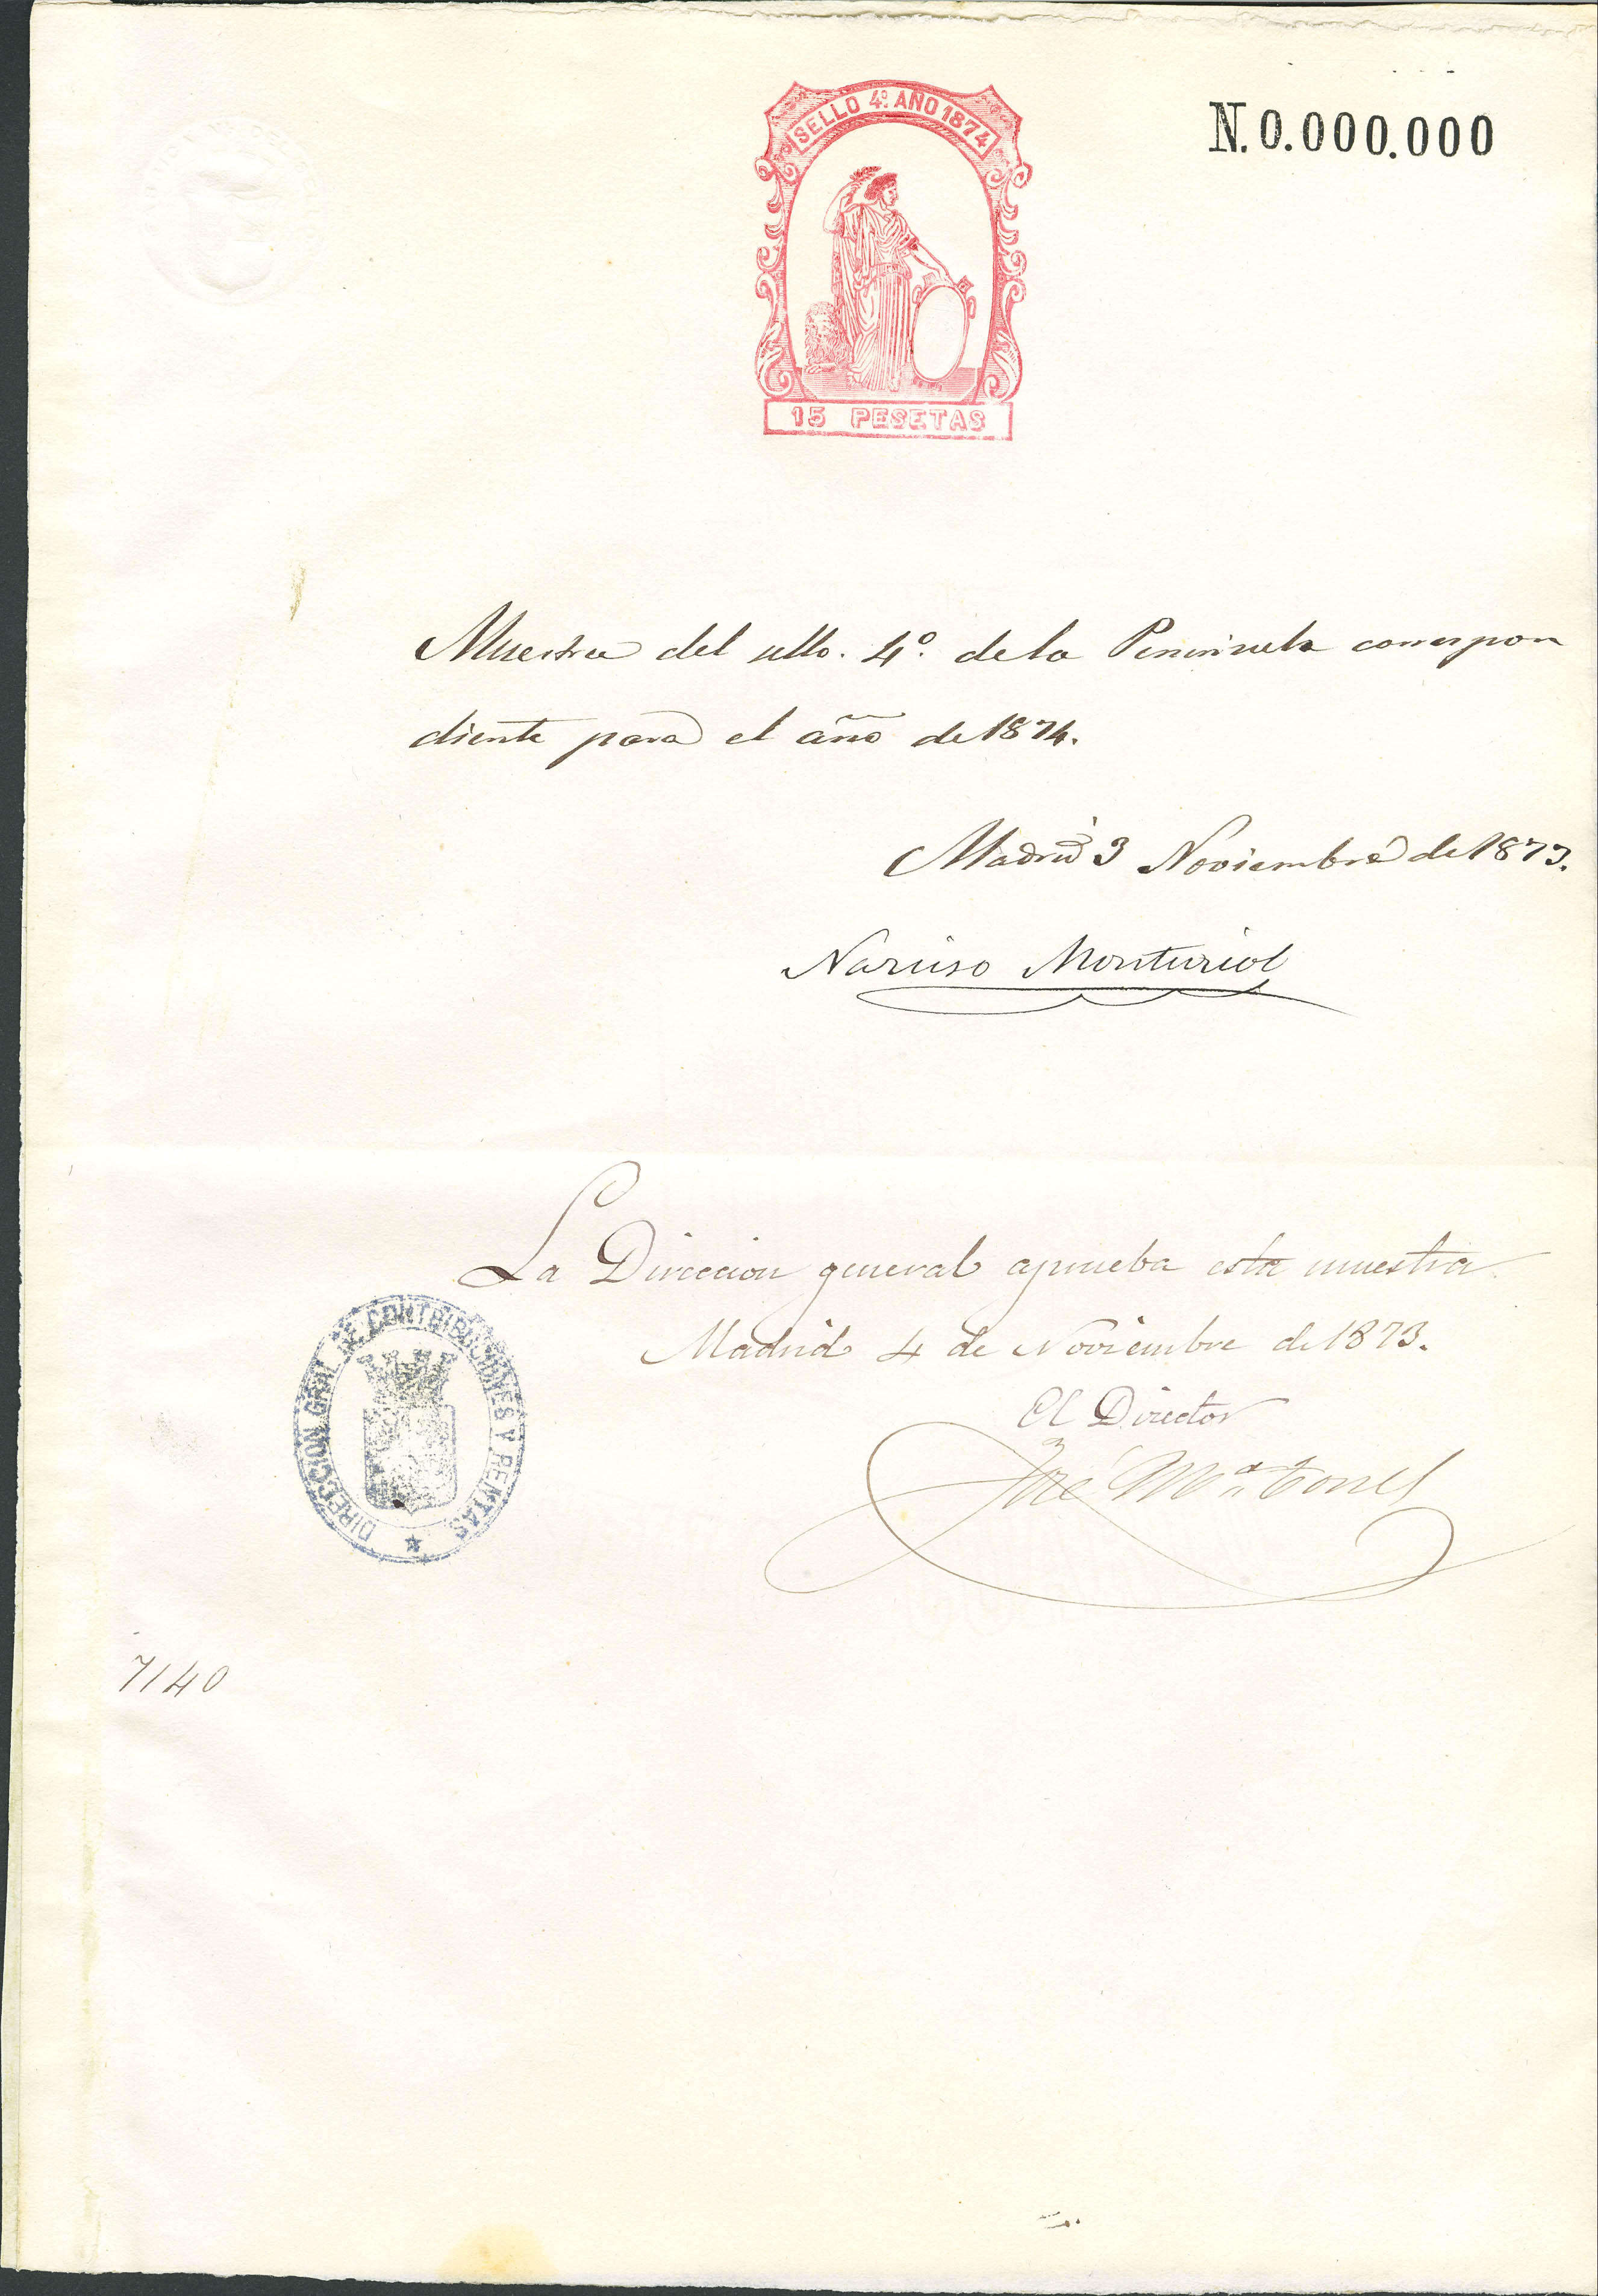 SELLO 4º AÑO 1874
N. 0.000.000
15 PESETAS
Muestra del sello. 4º. de la Peninsula correspon
diente para el año de 1874.
Madrid 3 Noviembre de 1873.
Narciso Monturiol
La Direccion general aprueba esta muestra
Madrid 4 de Noviembre de 1873.
El Director
José Mª Torres
DIRECCION GRAL DE CONTRIBUCIONES Y RENTAS
7140